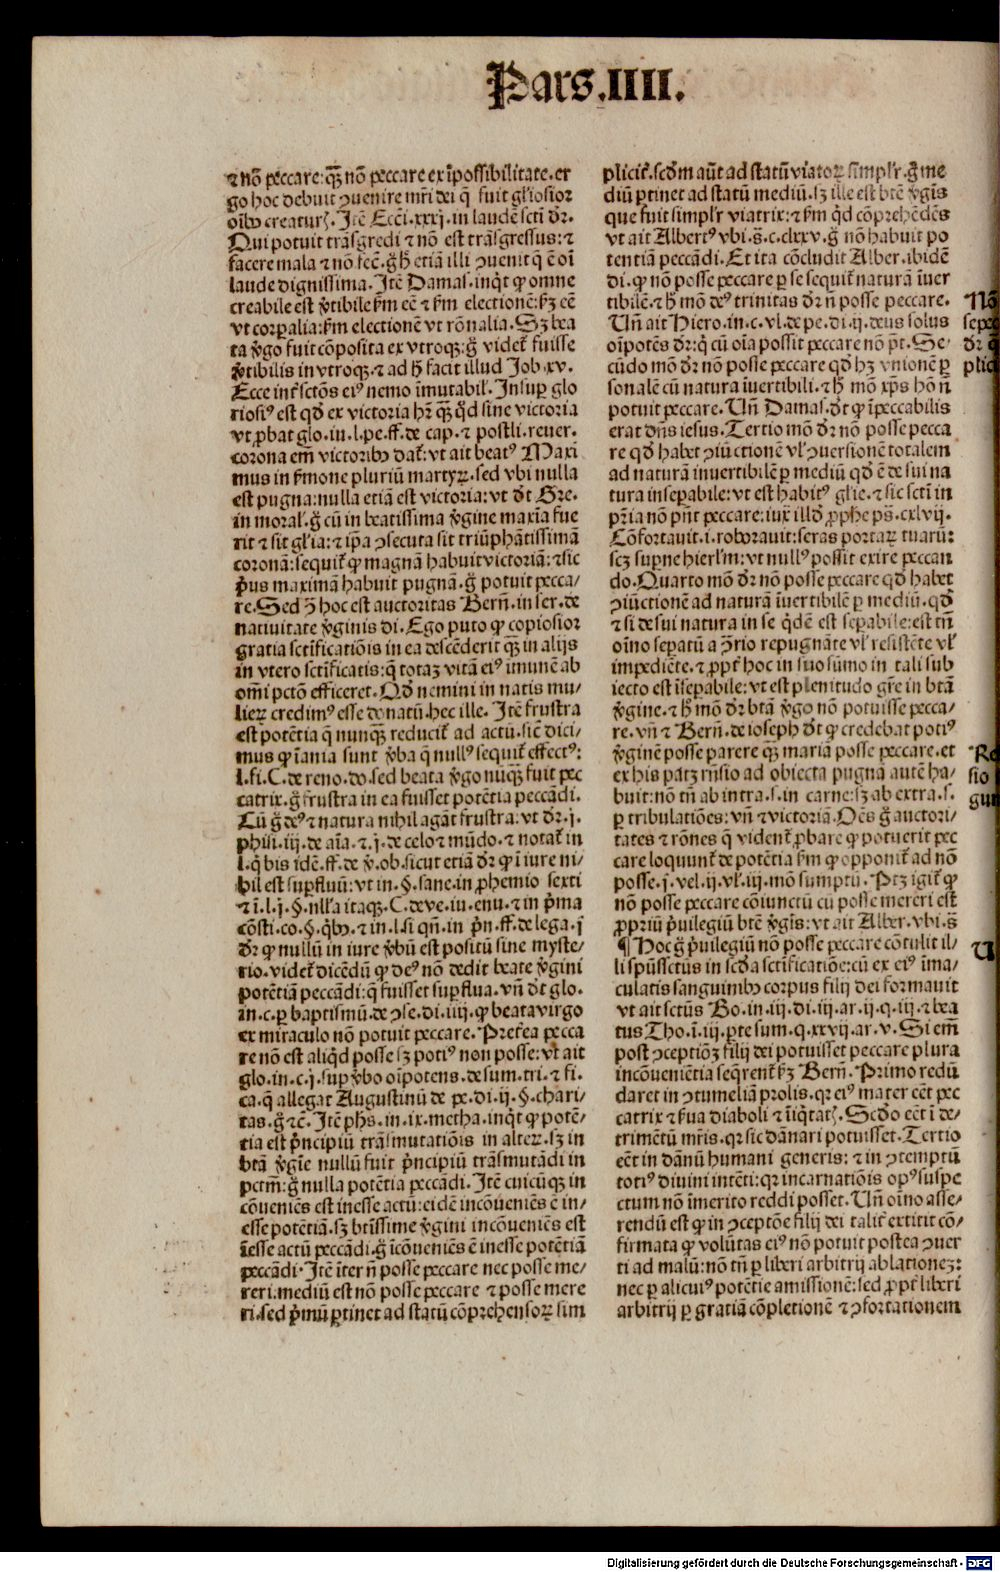 Pars.IIII.
⁊ nō peccare: qꝫ̄ nō peccare ex īpossibilitate. er
go hoc debuit ꝯuenire mr̄i dei q̄ fuit gl̓iosior
oīb⁹ creaturꝭ. Itē Ecci. xxxj. in laudē scti dr̄.
Qui potuit trāsgredi ⁊ nō est trāsgressus: ⁊
facere mala ⁊ nō fec̄. g̊ h̄ etiā illi ꝯuenit q̄ ē oī
laude dignissima. Itē Damas. inq̇t ꝙ omne
creabile est v̓tibile ẜm eē ⁊ ẜm electionē: ẜꝫ eē
vt corpalia: ẜm electionē vt rōnalia. Sꝫ bea
ta v̓go fuit cōposita ex vtroqꝫ. g̊ videt᷑ fuisse
v̓tibilis in vtroqꝫ. ⁊ ad h̄ facit illud Job .xv.
Ecce int̓ sctōs ei⁹ nemo īmutabil̓. Insuꝑ glo
riosi⁹ est qd̓ ex victoria hr̄ qꝫ̄ qd̓ sine victoria
vt ꝓbat glo. in. l. pe. ff. de cap. ⁊ postli. reuer.
corona em̄ victorib⁹ dat᷑: vt ait beat⁹ Maxi
mus in ẜmone pluriū martyꝝ. sed vbi nulla
est pugna: nulla etiā est victoria: vt dt̄ Gre.
in moral̓. g̊ cū in beatissima v̓gine maxīa fue
rit ⁊ sit gl̓ia: ⁊ ip̄a ꝯsecuta sit triūphātissimā
coronā: sequit᷑ ꝙ magnā habuit victoriā: ⁊ sic
pus maximā habuit pugnā. g̊ potuit pecca⸗
re. Sed ꝯ̄ hoc est auctoritas Bern̄. in ser. de
natiuitate v̓ginis di. Ego puto ꝙ copiosior
gratia sctīficatiōis in ea descēderit qꝫ̄ in alijs
in vtero sctīficatis: q̄ totaꝫ vitā ei⁹ imunē ab
om̄i pctō efficeret. Qd̓ nemini in natis mu⸗
lieꝝ credim⁹ esse donatū. hec ille. Itē frustra
est potētia q̄ nunqꝫ̄ reducit᷑ ad actū. sic̄ dici
mus ꝙ īania sunt v̓ba q̄ null⁹ sequit᷑ effect⁹:
l. fi. C. de reno. do. sed beata v̓go nūqꝫ̄ fuit pec
catrix. g̊ frustra in ea fuisset potētia peccādi.
Cū g̊ de⁹ ⁊ natura nihil agāt frustra: vt dr̄. j.
phili. iij. de aīa. ⁊. j. de celo ⁊ mūdo. ⁊ notat᷑ in
l. q̇ bis idē. ff. de v̓. ob. sicut etiā dr̄ ꝙ ī iure ni⸗
hil est suꝑfluū: vt in. §. sane. in ꝓhemio sexti
⁊ ī. l. j. §. nll̓a itaqꝫ. C. de ve. iu. enu. ⁊ in pma
cōsti. co. §. q̇b⁹. ⁊ in. l. si qn̄. in pn̄. ff. de lega. j
dr̄ ꝙ nullū in iure v̓bū est positū sine myste⸗
rio. videt᷑ dicēdū ꝙ de⁹ nō dedit beate v̓gini
potētiā peccādi: q̄ fuisset suꝑflua. vn̄ dt̄ glo.
in. c. ꝑ baptismū. de ꝯse. di. iiij. ꝙ beata virgo
ex miraculo nō potuit peccare. Pret̓ea pecca
re nō est aliq̇d posse sꝫ poti⁹ non posse: vt ait
glo. in. c. j. suꝑ v̓bo oīpotens. de sum. tri. ⁊ fi.
ca. q̄ allegat Augustinū de pe. di. ij. §. chari⸗
tas. g̊ ⁊c̄. Itē ph̄s. in. ix. metha. inq̇t ꝙ potē⸗
tia est pncipiū trāsmutatiōis in alteꝝ. sꝫ in
btā v̓gīe nullū fuit pncipiū trāsmutādi in
pctm̄: g̊ nulla potētia peccādi. Itē cuicūqꝫ in
cōueniēs est inesse actū: eidē incōueniēs ē in⸗
esse potētiā. sꝫ btīssime v̓gini incōueniēs est
īesse actū peccādi. g̊ īcōueniēs ē inesse potētiā
peccādi. Itē īter n̄ posse peccare nec posse me⸗
reri: mediū est nō posse peccare ⁊ posse mere
ri. sed pmū ꝑtinet ad statū cōprehensoꝝ sim
plicit᷑. scd̓m aūt ad statū viatoꝝ simpl̓r. g̊ me
diū ꝑtinet ad statū mediū. sꝫ ille est btē v̓gīs
que fuit simpl̓r viatrix: ⁊ ẜm qd̓ cōprehēdēs
vt ait Albert⁹ vbi. s̄. c. clxxv. g̊ nō habuit po
tentiā peccādi. Et ita cōcludit Alber. ibidē
di. ꝙ nō posse peccare ꝑ se sequit᷑ naturā īuer
tibilē. ⁊ h̄ mō de⁹ trinitas dr̄ n̄ posse peccare.
Un̄ ait Hiero. in. c. vl. de pe. di. ij. deus solus
oīpotēs dr̄: q̇ cū oīa possit peccare nō pt̄. Se⸗
cūdo mō dr̄ nō posse peccare qd̓ hꝫ vnionē ꝑ
sonalē cū natura īuertibili. ⁊ h̄ mō xp̄s hō n̄
potuit peccare. Un̄ Damas. dt̄ ꝙ īpeccabilis
erat dn̄s iesus. Tertio mō dr̄ nō posse pecca
re qd̓ habet ꝯiūctionē vl̓ ꝯuersionē totalem
ad naturā inuertibilē ꝑ mediū qd̓ ē de sui na
tura inseꝑabile: vt est habit⁹ gl̓ie. ⁊ sic sctī in
pr̄ia nō pn̄t peccare: iux̄ illd̓ ꝓphe ps̄. cxlvij.
Cōfortauit. i. roborauit: seras portaꝝ tuarū:
scꝫ suꝑne hierl̓m: vt null⁹ possit exire peccan
do. Quarto mō dr̄ nō posse peccare qd̓ habet
ꝯiūctionē ad naturā īuertibilē ꝑ mediū. qd̓
⁊ si de sui natura in se q̇dē est seꝑabile: est tn̄
oīno seꝑatū a ꝯ̄rio repugnāte vl̓ resistēte vl̓
impediēte. ⁊ ꝓpt᷑ hoc in suo sūmo in tali sub
iecto est īseꝑabile: vt est plenitudo gr̄e in btā
v̓gine. ⁊ h̄ mō dr̄ btā v̓go nō potuisse pecca⸗
re. vn̄ ⁊ Bern̄. de ioseph dt̄ ꝙ credebat poti⁹
v̓ginē posse parere qꝫ̄ mariā posse peccare. et
ex his patꝫ rn̄sio ad obiecta pugnā autē ha⸗
buit: nō tn̄ ab intra. s. in carne: sꝫ ab extra. s.
ꝑ tribulatiōes: vn̄ ⁊ victoriā. Oēs g̊ auctori⸗
tates ⁊ rōnes q̄ vident᷑ ꝓbare ꝙ potuerit pec
care loquunt᷑ de potētia ẜm ꝙ opponit᷑ ad nō
posse. j. vel. ij. vl̓. iij. mō sumptū. Ptꝫ igit᷑ ꝙ
nō posse peccare cōiunctū cū posse mereri est
ꝓpriū puilegiū btē v̓gīs: vt ait Alber. vbi. s̄
¶ Hoc g̊ puilegiū nō posse peccare cōtulit il⸗
li spūssctus in scd̓a sctificatiōe: cū ex ei⁹ īma⸗
culatis sanguinib⁹ corpus filij dei formauit
vt ait sctūs Bo. in. iij. di. iij. ar. ij. q. iij. ⁊ bea
tus Tho. ī. iij. ꝑte sum. q. xxvij. ar. v. Si em̄
post ꝯceptiōꝫ filij dei potuisset peccare plura
incōuenientia seq̄rent᷑ ẜꝫ Bern̄. Primo redū
daret in ꝯtumeliā prolis. qr ei⁹ mater eēt pec
catrix ⁊ ẜua diaboli ⁊ īiq̇tatꝭ. Scd̓o eēt ī de⸗
trimētū mr̄is. qr sic dānari potuisset. Tertio
eēt in dānū humani generis: ⁊ in ꝯtemptū
toti⁹ diuini intēti: qr incarnatiōis op⁹ suspe
ctum nō īmerito reddi posset. Un̄ oīno asse⸗
rendū est ꝙ in ꝯceptōe filij dei talit᷑ extitit cō⸗
firmata ꝙ volūtas ei⁹ nō potuit postea ꝯuer
ti ad malū: nō tn̄ ꝑ liberi arbitrij ablationeꝫ:
nec ꝑ alicui⁹ potētie amissionē: sed ꝓpt᷑ liberi
arbitrij ꝑ gratiā cōpletionē ⁊ ꝯfortationem
Nō
dr̄
Digitalisierung gefördert durch die Deutsche Forschungsgemeinschaft - DFG